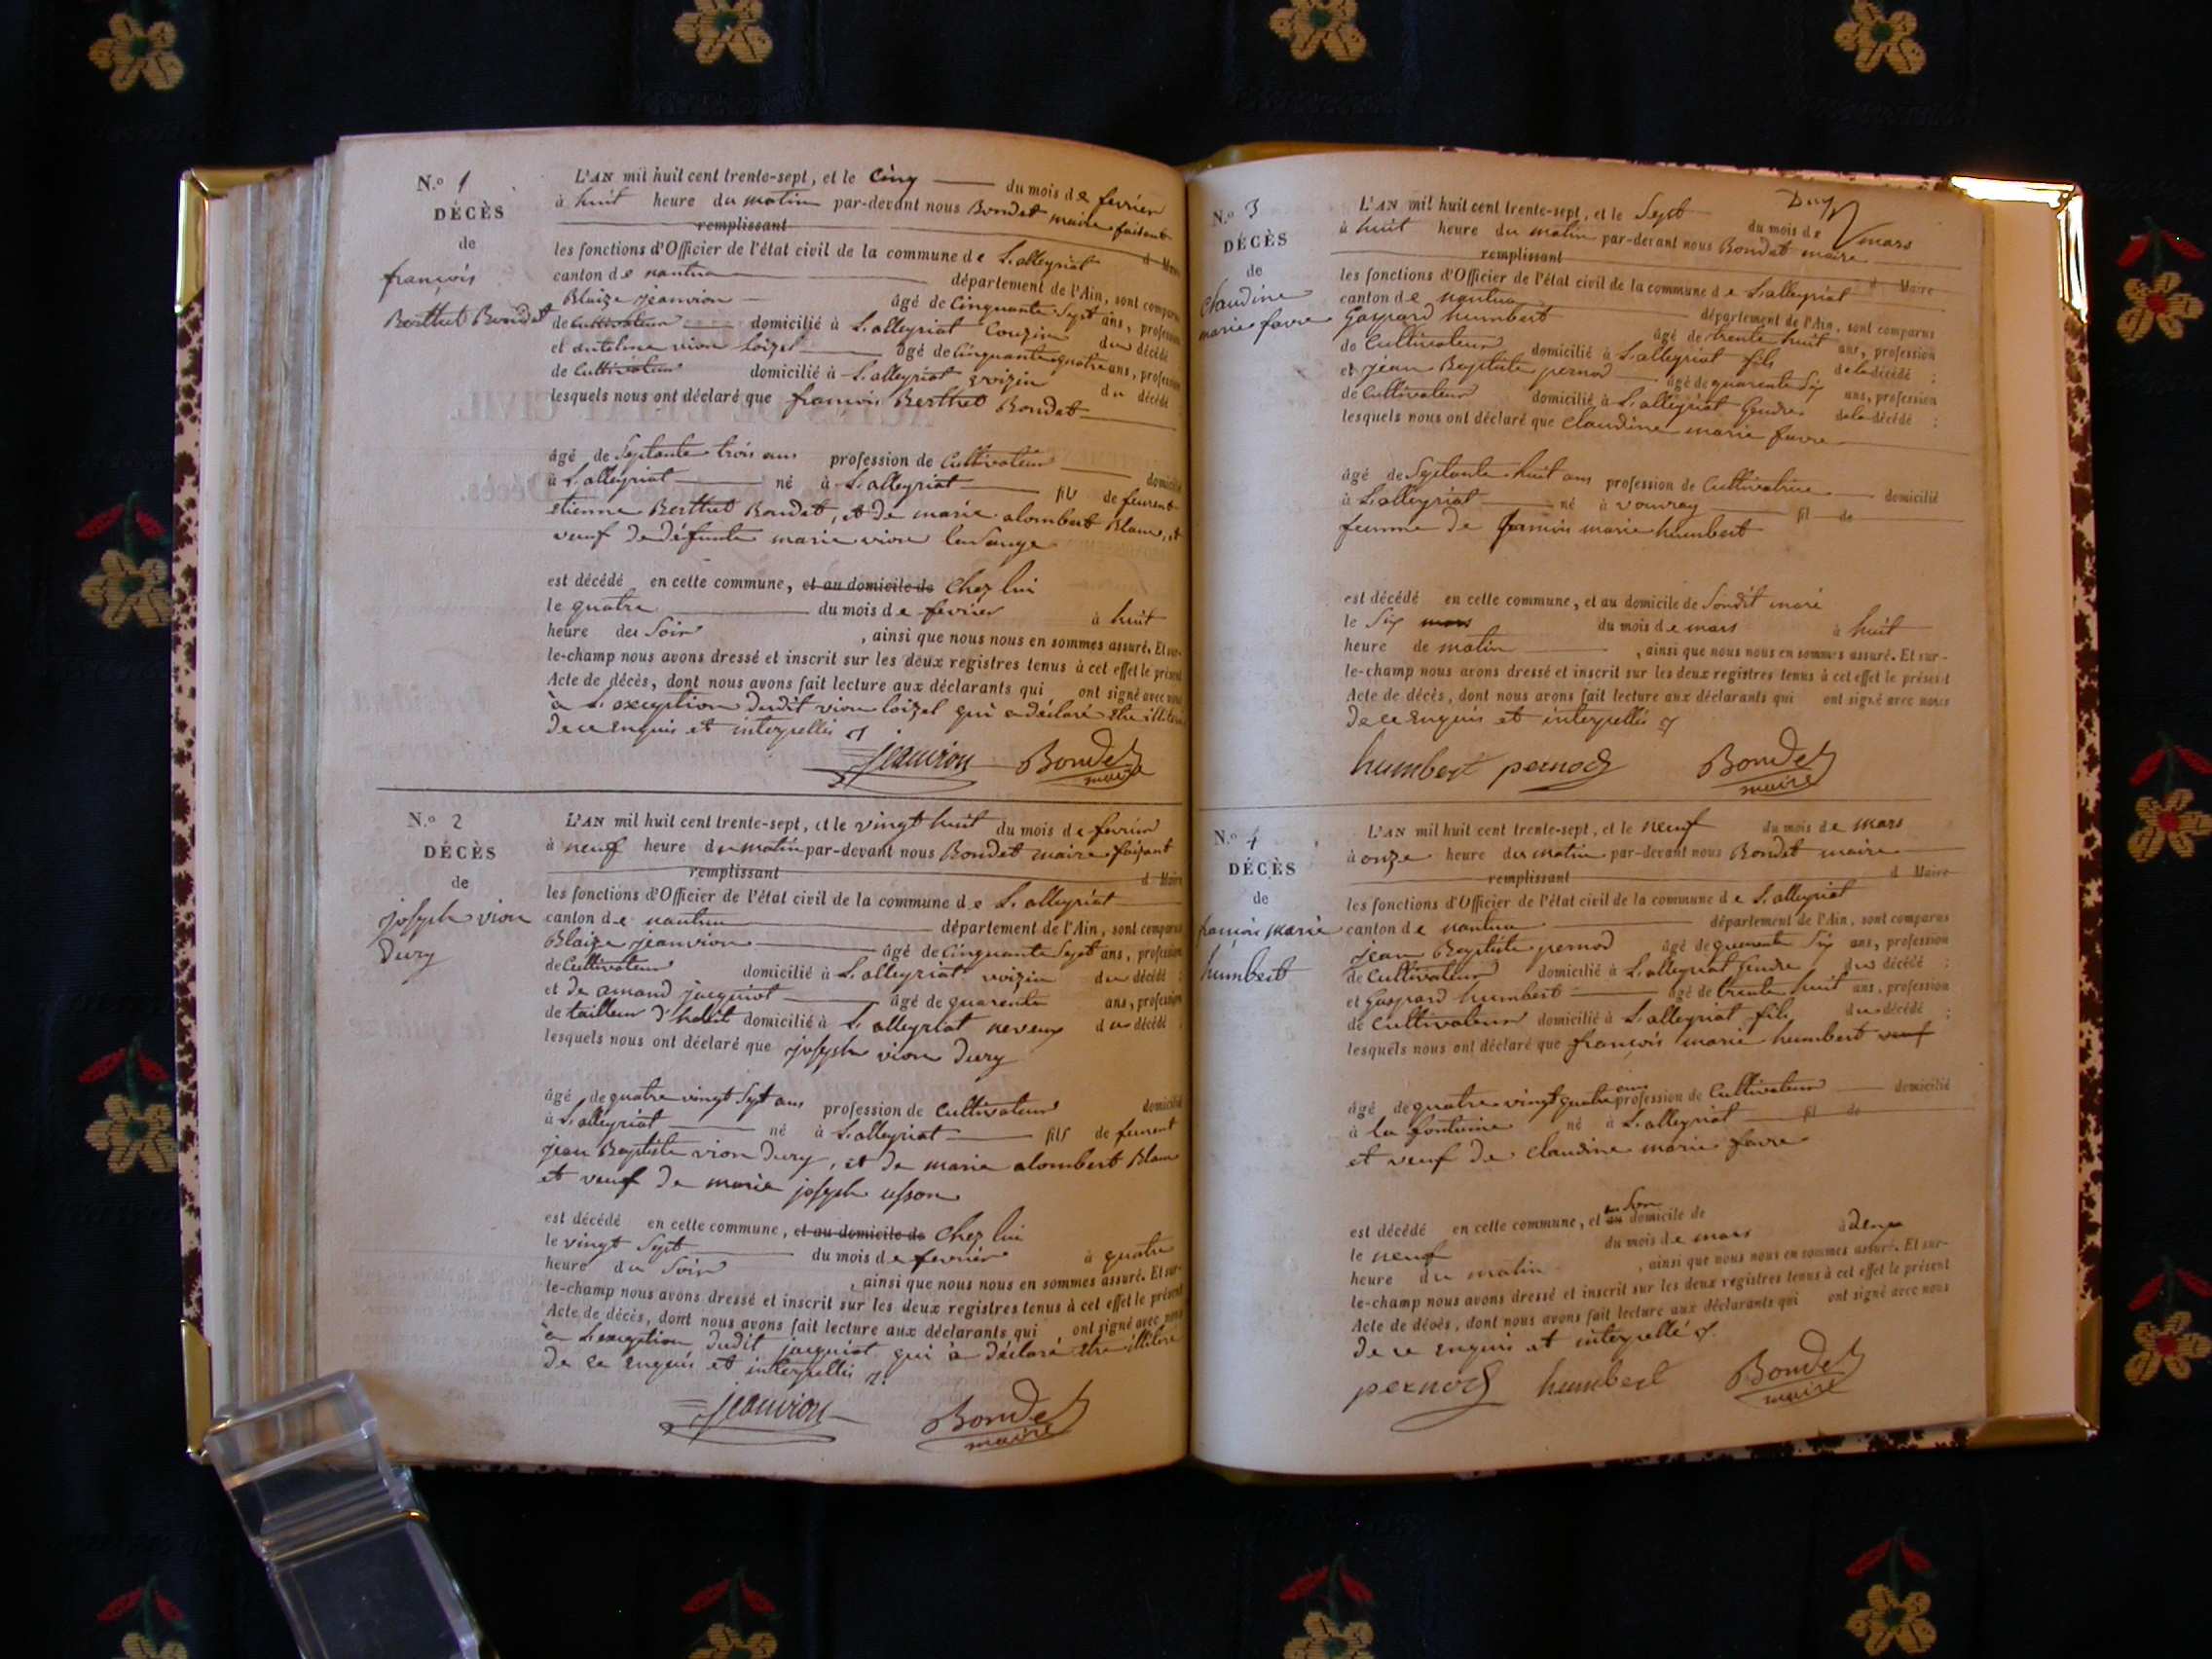 N.o 1
DÉCÈS
de
françois
Berthet Bondet
L'AN mil huit cent trente-sept, et le Cinq du mois de fevrier
à huit heure du matin par-devant nous Bondet maire faisant
remplissant d Maire
les fonctions d'Officier de l'état civil de la commune de S.t alleyriat
canton de nantua département de l'Ain, sont comparus
Blaize jeanvion âgé de Cinquante Sept ans, profession
de Cultivateur domicilié à S.t alleyriat Couzin du décédé
et antelme vion loizel âgé de Cinquante quatre ans, profession
de Cultivateur domicilié à S.t alleyriat voizin du décédé ;
lesquels nous ont déclaré que françois Berthet Bondet
âgé de Septante trois ans profession de Cultivateur domicilié
à S.t alleyriat né à S.t alleyriat fils de feurent
etienne Berthet Bondet, et de marie alombert Blanc, et
veuf de défunte marie vion
est décédé en cette commune, et au domicile de Chez lui
le quatre du mois de fevrier à huit
heure du Soir , ainsi que nous nous en sommes assuré. Et sur-
le-champ nous avons dressé et inscrit sur les deux registres tenus à cet effet le présent
Acte de décès, dont nous avons fait lecture aux déclarants qui ont signé avec nous
à l'exception dudit vion loizel qui a déclaré etre illitéré
de ce enquis et interpellés
jeanvion Bondet
maire
N.o 2
DÉCÈS
de
joseph vion
Dury
L'AN mil huit cent trente-sept, et le vingt huit du mois de fevrier
à neuf heure du matin par-devant nous Bondet maire faisant
remplissant d Maire
les fonctions d'Officier de l'état civil de la commune de S.t alleyriat
canton de nantua département de l'Ain, sont comparus
Blaize jeanvion âgé de Cinquante Sept ans, profession
de Cultivateur domicilié à S.t alleyriat voizin du décédé ;
et de amand jacquiot âgé de quarente ans, profession
de tailleur d'habit domicilié à S.t alleyriat neveux du décédé ;
lesquels nous ont déclaré que joseph vion Dury
âgé de quatre vingt Sept ans profession de Cultivateur domicilié
à S.t alleyriat né à S.t alleyriat fils de feurent
jean Baptiste vion Dury, et de marie alombert Blanc
et veuf de marie joseph
est décédé en cette commune, et au domicile de Chez lui
le vingt Sept du mois de fevrier à quatre
heure du Soir , ainsi que nous nous en sommes assuré. Et sur-
le-champ nous avons dressé et inscrit sur les deux registres tenus à cet effet le présent
Acte de décès, dont nous avons fait lecture aux déclarants qui ont signé avec nous
à l'exception dudit jacquiot qui a déclaré etre illitéré
de ce enquis et interpellés
jeanvion Bondet
maire
N.o 3
DÉCÈS
de
Claudine
marie favre
L'AN mil huit cent trente-sept, et le Sept du mois de mars
à huit heure du matin par-devant nous Bondet maire
remplissant d Maire
les fonctions d'Officier de l'état civil de la commune de S.t alleyriat
canton de nantua département de l'Ain, sont comparus
Gaspard humbert âgé de trente huit ans, profession
de Cultivateur domicilié à S.t alleyriat fils de la décédé ;
et jean Baptiste pernod âgé de quarente Six ans, profession
de Cultivateur domicilié à S.t alleyriat Gendre de la décédé ;
lesquels nous ont déclaré que Claudine marie favre
âgé de Septante huit ans profession de Cultivatrice domicilié
à S.t alleyriat né à vouvray fil de
femme de françois marie humbert
est décédé en cette commune, et au domicile de Sondit mari
le Six mars du mois de mars à huit
heure de matin , ainsi que nous nous en sommes assuré. Et sur-
le-champ nous avons dressé et inscrit sur les deux registres tenus à cet effet le présent
Acte de décès, dont nous avons fait lecture aux déclarants qui ont signé avec nous
de ce enquis et interpellés
humbert pernod Bondet
maire
N.o 4
DÉCÈS
de
françois marie
humbert
L'AN mil huit cent trente-sept, et le neuf du mois de mars
à onze heure du matin par-devant nous Bondet maire
remplissant d Maire
les fonctions d'Officier de l'état civil de la commune de S.t alleyriat
canton de nantua département de l'Ain, sont comparus
jean Baptiste pernod âgé de quarente Six ans, profession
de Cultivateur domicilié à S.t alleyriat Gendre du décédé ;
et Gaspard humbert âgé de trente huit ans, profession
de Cultivateur domicilié à S.t alleyriat fils du décédé ;
lesquels nous ont déclaré que françois marie humbert veuf
âgé de quatre vingt quatre ans profession de Cultivateur domicilié
à la fontaine né à S.t alleyriat fil de
et veuf de claudine marie favre
est décédé en cette commune, et en Son domicile de
le neuf du mois de mars à deux
heure du matin , ainsi que nous nous en sommes assuré. Et sur-
le-champ nous avons dressé et inscrit sur les deux registres tenus à cet effet le présent
Acte de décès, dont nous avons fait lecture aux déclarants qui ont signé avec nous
de ce enquis et interpellé
pernod humbert Bondet
maire